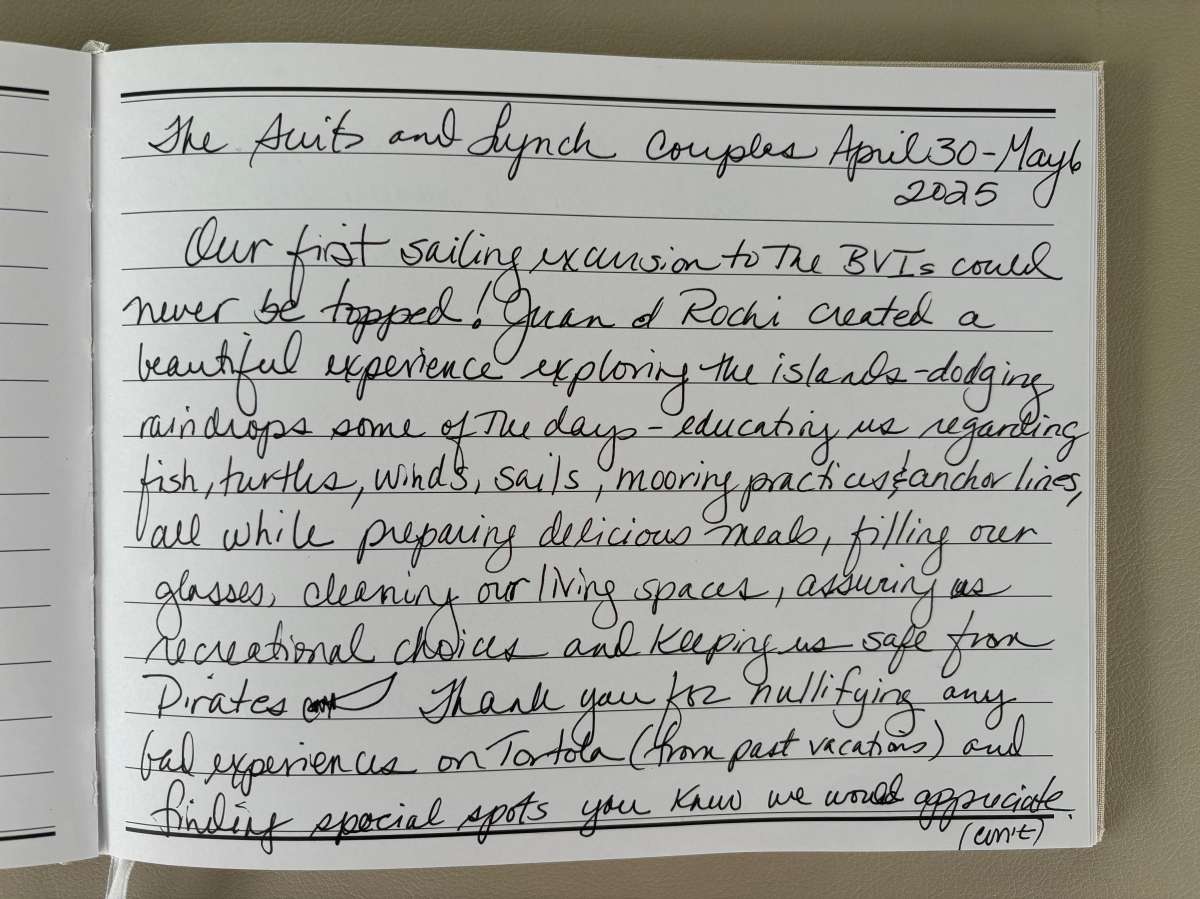 The Suits and Lynch Couples April 30 - May 6
2025
Our first sailing excursion to the BVIs could
never be topped! Juan & Rochi created a
beautiful experience exploring the islands - dodging
raindrops some of the days - educating us regarding
fish, turtles, winds, sails, mooring practices & anchor lines,
all while preparing delicious meals, filling our
glasses, cleaning our living spaces, assuring us
recreational choices and keeping us safe from
Pirates Thank you for nullifying any
bad experiences on Tortola (from past vacations) and
finding special spots you knew we would appreciate.
(con't)